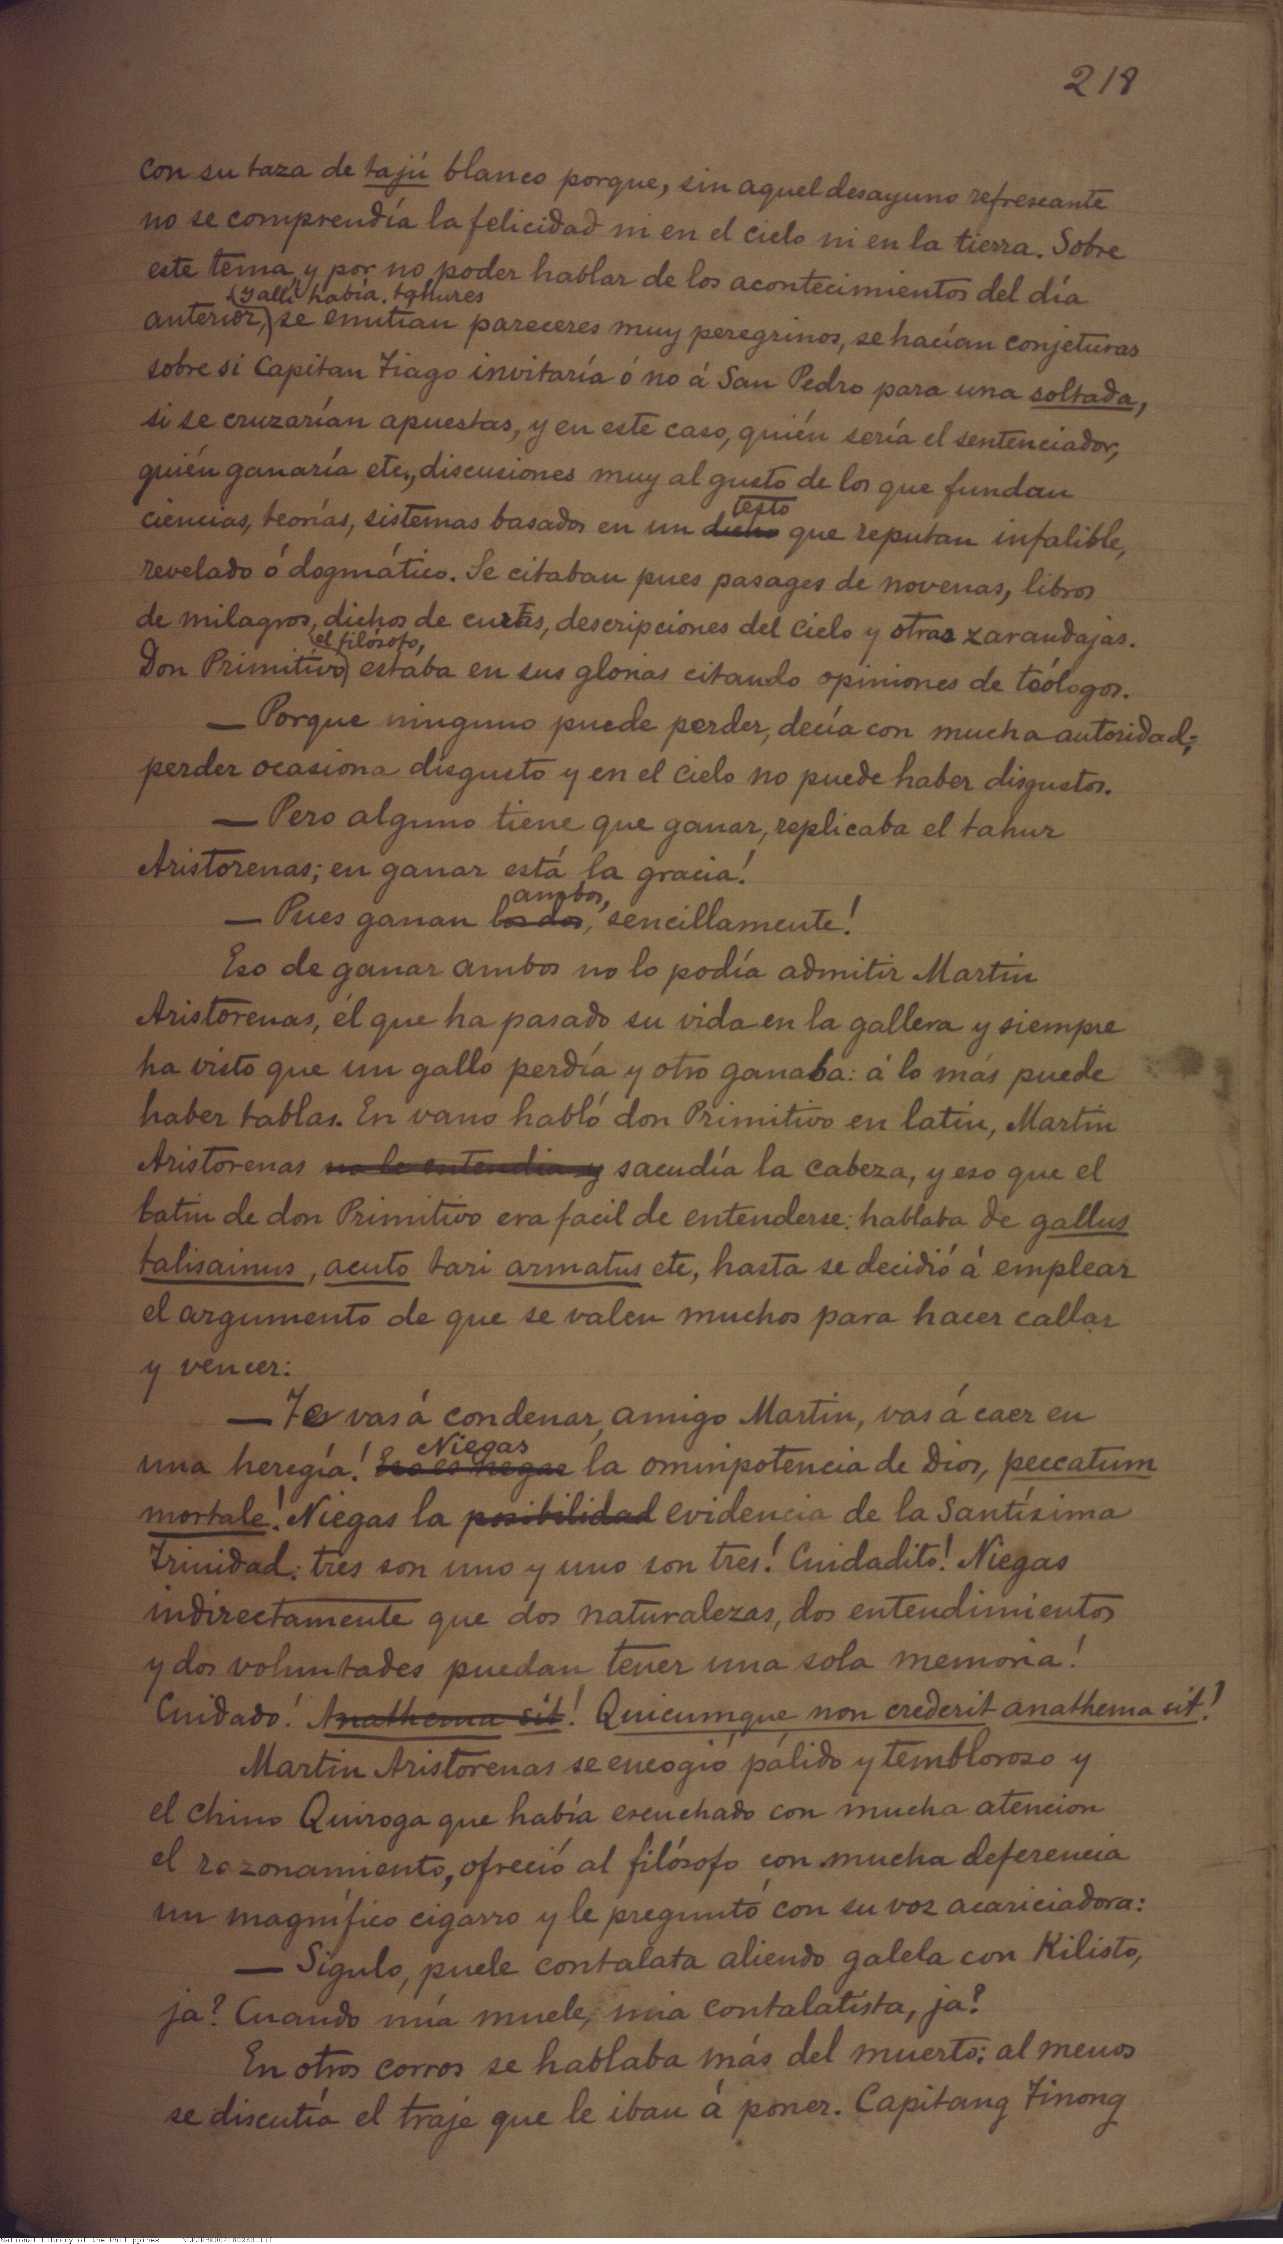 218
con su taza de tajú blanco porque, sin aquel desayuno refrescante
no se comprendía la felicidad ni en el cielo ni en la tierra. Sobre
este tema, y por no poder hablar de los acontecimientos del día
(y allí había tahures
anterior,) se emitían pareceres muy peregrinos, se hacían conjeturas
sobre si Capitan Tiago invitaría ó no á San Pedro para una soltada,
si se cruzarían apuestas, y en este caso, quién sería el sentenciador,
quién ganaría etc., discusiones muy al gusto de los que fundan
testo
ciencias, teorías, sistemas basados en un dicho que reputan infalible,
revelado ó dogmático. Se citaban pues pasages de novenas, libros
de milagros, dichos de curas, descripciones del cielo y otras zarandajas.
(el filósofo,
Don Primitivo) estaba en sus glorias citando opiniones de teólogos.
— Porque ninguno puede perder, decía con mucha autoridad;
perder ocasiona disgusto y en el cielo no puede haber disgustos.
— Pero alguno tiene que ganar, replicaba el tahur
Aristorenas; en ganar está la gracia!
ambos,
— Pues ganan los dos, sencillamente!
Eso de ganar ambos no lo podía admitir Martin
Aristorenas, él que ha pasado su vida en la gallera y siempre
ha visto que un gallo perdía y otro ganaba: á lo más puede
haber tablas. En vano habló don Primitivo en latin, Martin
Aristorenas no le entendia y sacudía la cabeza, y eso que el
latin de don Primitivo era facil de entenderse: hablaba de gallus
talisainus, acuto tari armatus etc, hasta se decidió á emplear
el argumento de que se valen muchos para hacer callar
y vencer:
— Te vas á condenar, amigo Martin, vas á caer en
Niegas
una heregía! Eso es negar la ominpotencia de Dios, peccatum
mortale! Niegas la posibilidad evidencia de la Santísima
Trinidad: tres son uno y uno son tres! Cuidadito! Niegas
indirectamente que dos naturalezas, dos entendimientos
y dos voluntades puedan tener una sola memoria!
Cuidado! Anathema sit! Quicumque non crederit anathema sit!
Martin Aristorenas se encogió pálido y tembloroso y
el chino Quiroga que había escuchado con mucha atencion
el razonamiento, ofreció al filósofo con mucha deferencia
un magnífico cigarro y le preguntó con su voz acariciadora:
— Sigulo, puele contalata aliendo galela con Kilisto,
ja? Cuando mía muele, mia contalatista, ja?
En otros corros se hablaba más del muerto; al menos
se discutía el traje que le iban á poner. Capitang Tinong